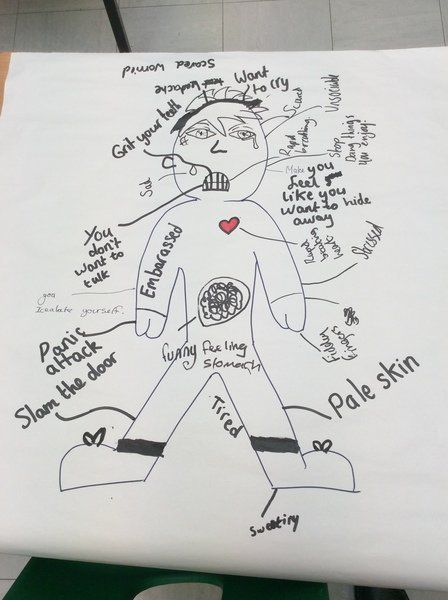 Scared worried
Headache
Want
to cry
Grit your teeth
Scared
Unsociable
Rapid
breathing
Stop
Doing things
you enjoy
Sad
Make you
feel
like you
want to hide
away
You
don't
want to
talk
Embarassed
Stressed
you
Isolate yourself.
Fiddley
Fingers
Panic
attack
Slam the door
funny feeling
stomach
Tired
Pale skin
sweating